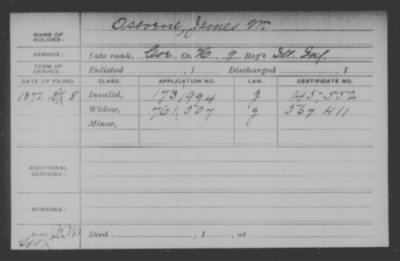 NAME OF SOLDIER: Osborne, James W.
SERVICE: Late rank, Cor. Co. H, 9 Reg't Ill. Inf.
TERM OF SERVICE: Enlisted , 1 Discharged , 1
DATE OF FILING. CLASS. APPLICATION NO. LAW. CERTIFICATE NO.
1872 8 Invalid, 173,994 145,552
Widow, 761,507 567,411
Minor,
ADDITIONAL SERVICES:
REMARKS:
Died , 1 , at